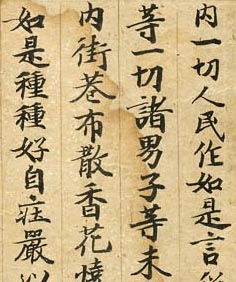 内一切人民作如是言
等一切諸男子等未
内街巷布散香花燒
如是種種好自庄嚴以